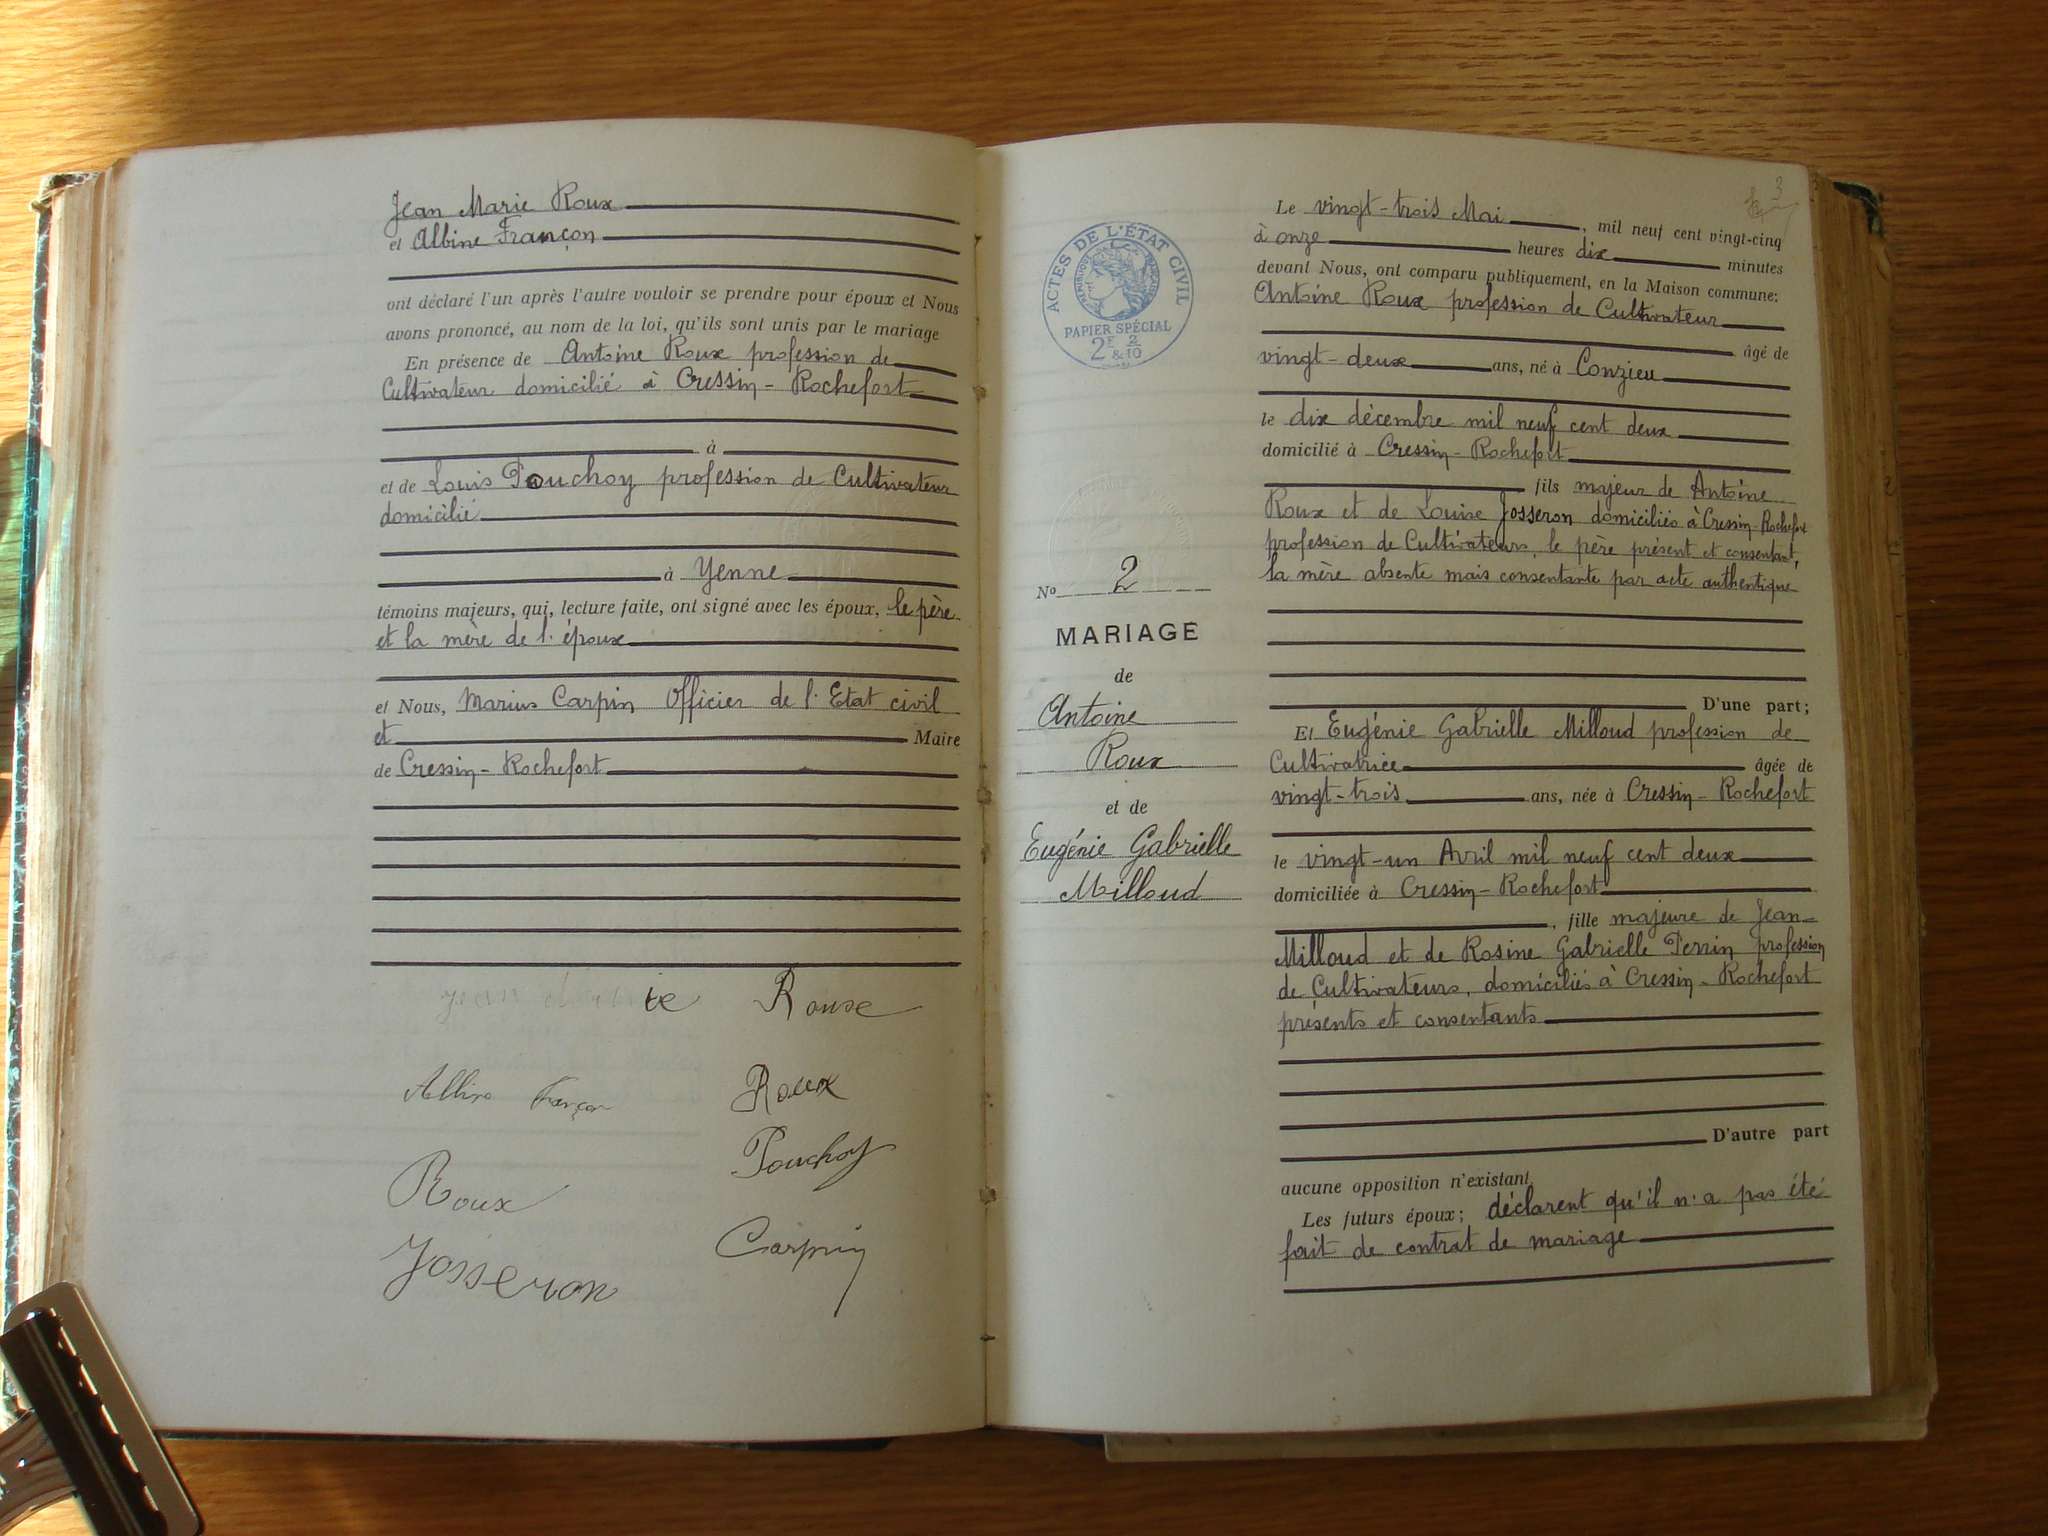 Jean Marie Roux
et Albine Françon
ont déclaré l'un après l'autre vouloir se prendre pour époux et Nous
avons prononcé, au nom de la loi, qu'ils sont unis par le mariage
En présence de Antoine Roux profession de
Cultivateur domicilié à Cressin-Rochefort
à
et de Louis Pouchoy profession de Cultivateur
domicilié
à Yenne
témoins majeurs, qui, lecture faite, ont signé avec les époux, le père
et la mère de l'époux
et Nous, Marius Carpin Officier de l'Etat civil
et Maire
de Cressin-Rochefort
Jean Marie Roux
Albine Françon Roux
Pouchoy
Roux
Carpin
Josseron
3
ACTES DE L'ÉTAT CIVIL
RÉPUBLIQUE FRANÇAISE
PAPIER SPÉCIAL
2F & 2/10
No 2
MARIAGE
de
Antoine
Roux
et de
Eugénie Gabrielle
Milloud
Le vingt-trois Mai, mil neuf cent vingt-cinq
à onze heures dix minutes
devant Nous, ont comparu publiquement, en la Maison commune:
Antoine Roux profession de Cultivateur
âgé de
vingt-deux ans, né à Conzieu
le dix décembre mil neuf cent deux
domicilié à Cressin-Rochefort
fils majeur de Antoine
Roux et de Louise Josseron domiciliés à Cressin-Rochefort
profession de Cultivateurs, le père présent et consentant,
la mère absente mais consentante par acte authentique
D'une part;
Et Eugénie Gabrielle Milloud profession de
Cultivatrice âgée de
vingt-trois ans, née à Cressin-Rochefort
le vingt-un Avril mil neuf cent deux
domiciliée à Cressin-Rochefort
, fille majeure de Jean
Milloud et de Rosine Gabrielle Perrin profession
de Cultivateurs, domiciliés à Cressin-Rochefort
présents et consentants
D'autre part
aucune opposition n'existant
Les futurs époux; déclarent qu'il n'a pas été
fait de contrat de mariage